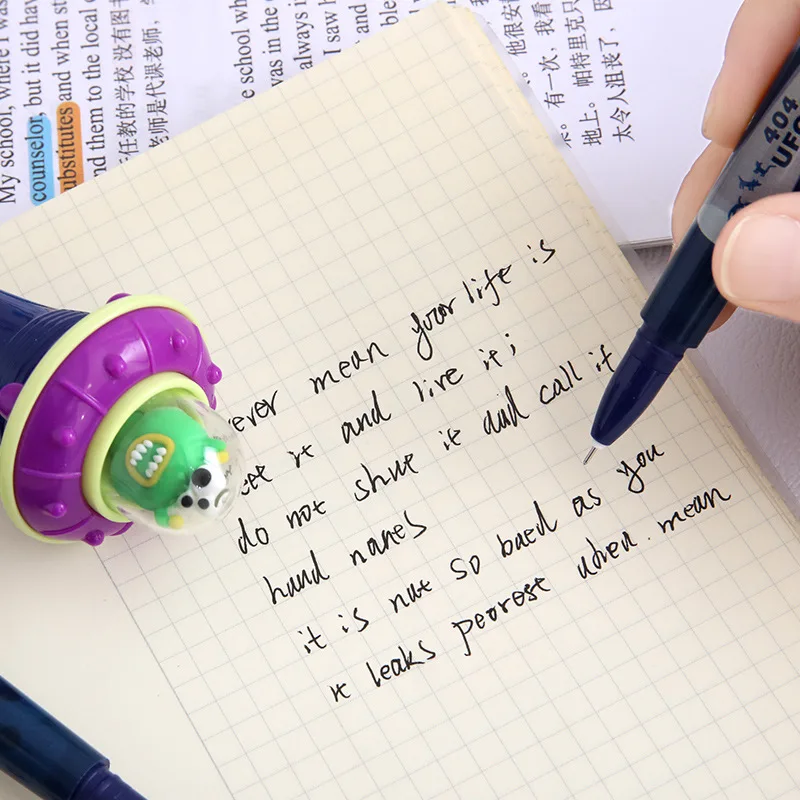 My school, where I was
counselor, but it did hav
ubstitutes and when st
nd them to the local c
任教的学校没有图书
老师是代课老师,
e school wh
was in the c
always i
I saw h
and
他很安
有一次,我看
地上。帕特里克只
太令人沮丧了,因
404
UFO
ever mean your life is
eet it and live it;
do not shut it and call it
hand nanes
it is not so baed as you
it leaks peorest when mean